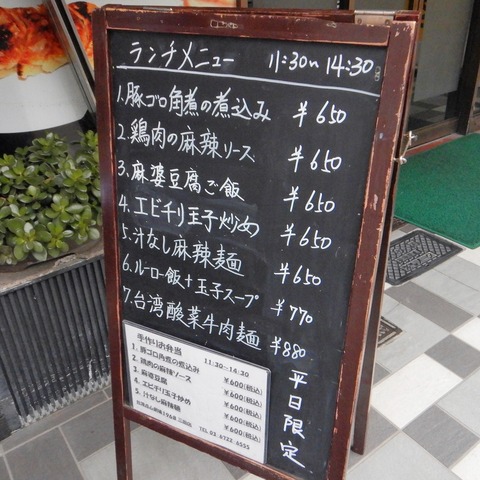 ランチメニュー 11:30~14:30
1.豚ゴロ角煮の煮込み ¥650
2.鶏肉の麻辣ソース ¥650
3.麻婆豆腐ご飯 ¥650
4.エビチリ玉子炒め ¥650
5.汁なし麻辣麺 ¥650
6.ルーロー飯+玉子スープ ¥770
7.台湾酸菜牛肉麺 ¥880
平日限定
手作りお弁当 11:30~14:30
1.豚ゴロ角煮の煮込み ¥600(税込)
2.鶏肉の麻辣ソース ¥600(税込)
3.麻婆豆腐 ¥600(税込)
4.エビチリ玉子炒め ¥600(税込)
5.汁なし麻辣麺 ¥600(税込)
TEL 03-6722-6555